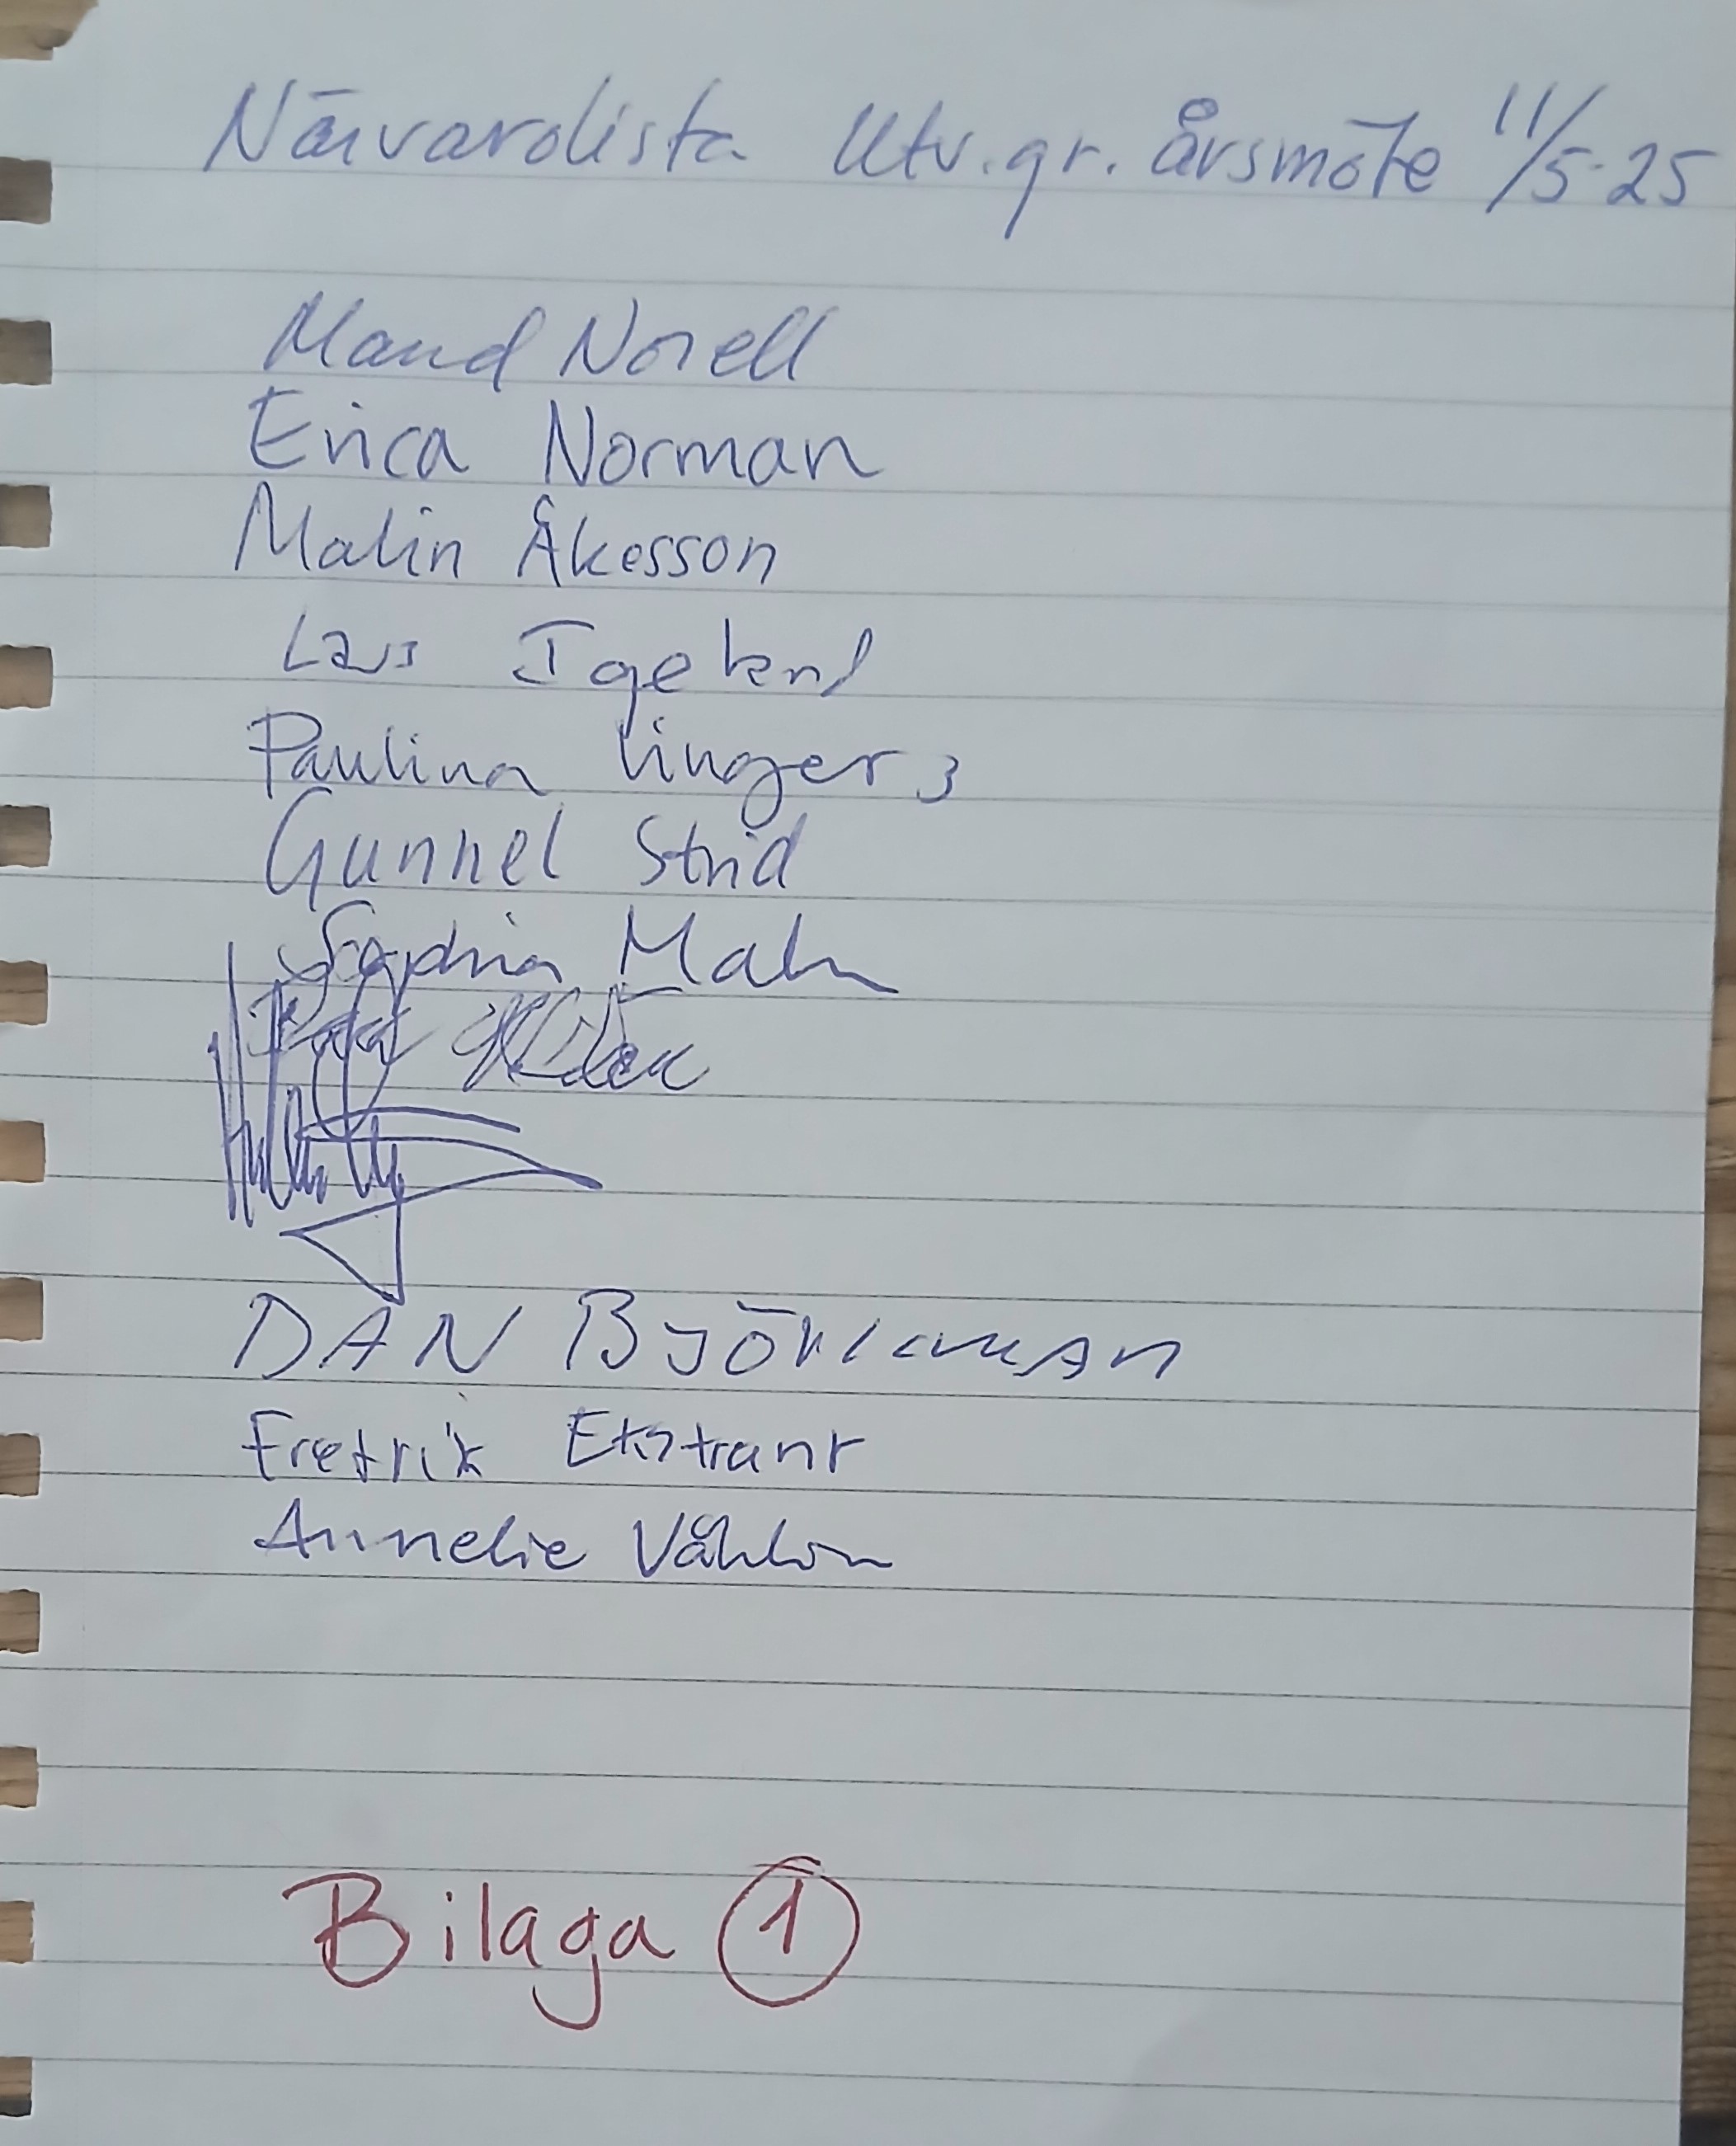 Närvarolista Utv.gr. årsmöte 11/5-25
Maud Norell
Erica Norman
Malin Åkesson
Lars
Paulina
Gunnel Strid
Sophia Malm
DAN BJÖRKMAN
Fredrik Ekstrand
Annelie
Bilaga 1